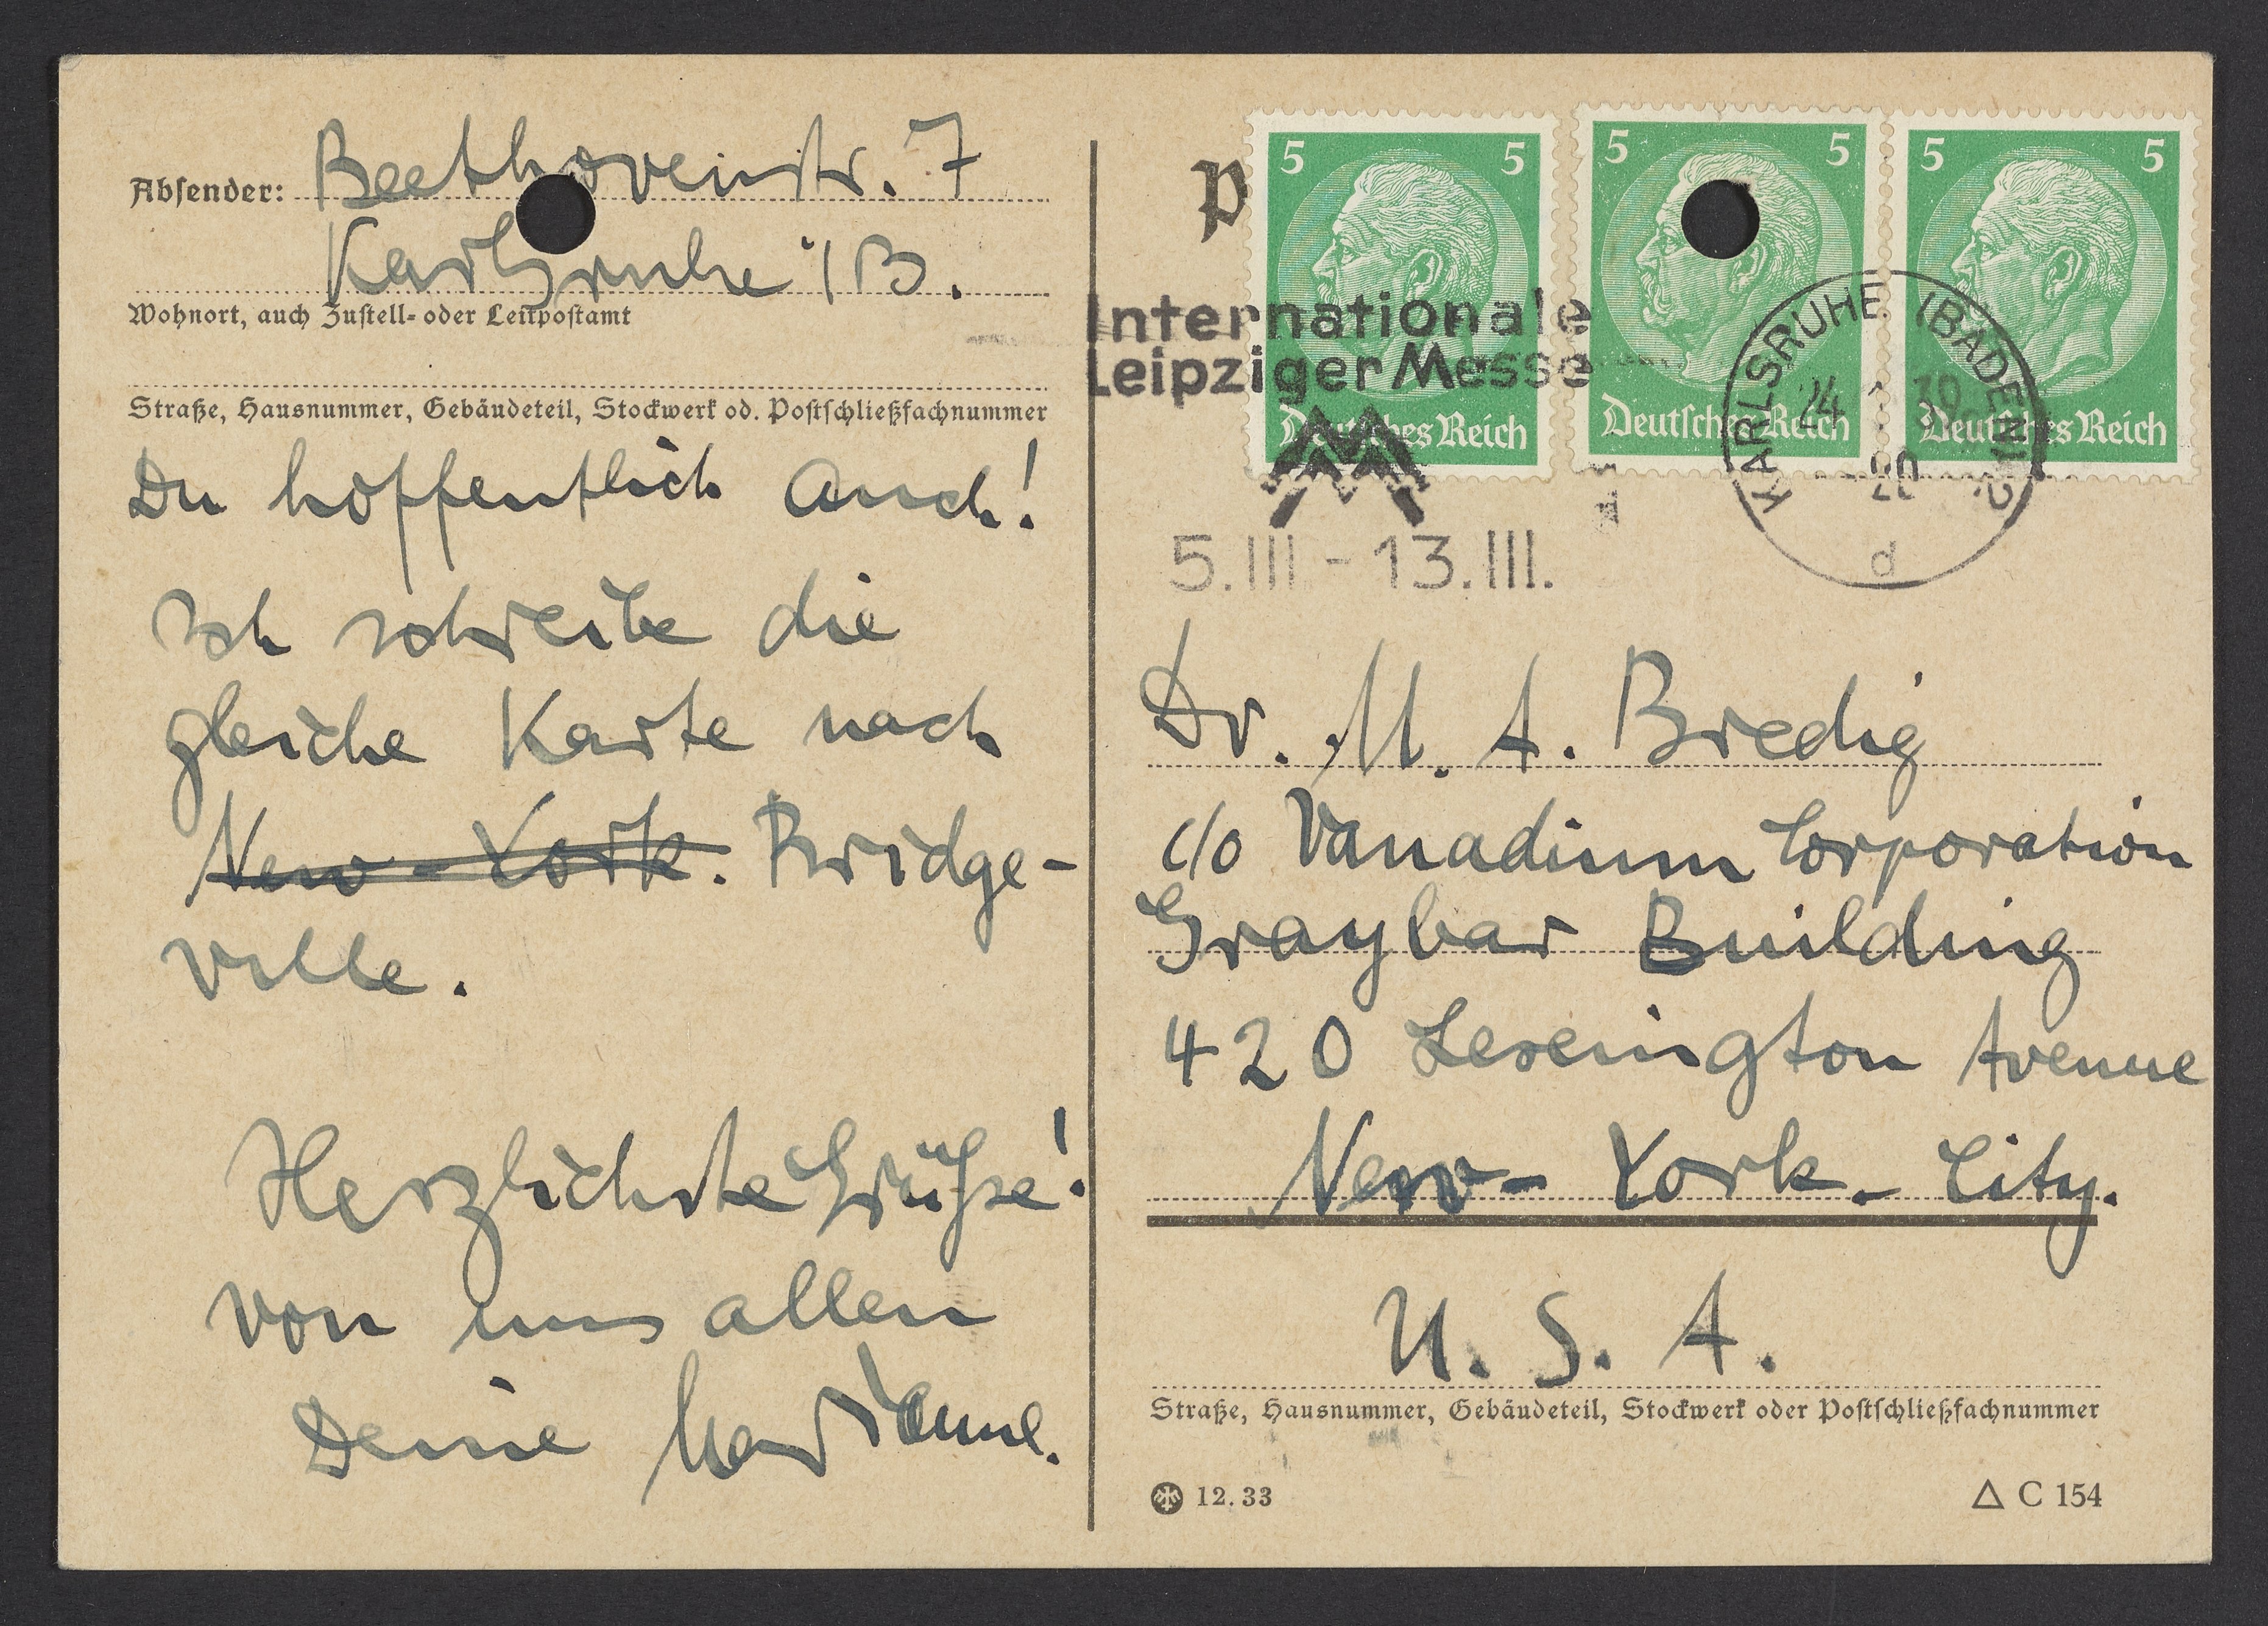 Absender: Beethovenstr. 7
Karlsruhe i/B.
Wohnort, auch Zustell- oder Leitpostamt
Straße, Hausnummer, Gebäudeteil, Stockwerk od. Postschließfachnummer
Du hoffentlich auch!
Ich schreibe die
gleiche Karte nach
New-York. Bridge-
ville.
Herzlichste Grüße!
von uns allen
Deine Marianne.
P
5 5 5 5 5 5
Deutsches Reich Deutsches Reich Deutsches Reich
Internationale
Leipziger Messe
5.III - 13.III.
KARLSRUHE (BADEN) 2
24
d
Dr. M. A. Bredig
c/o Vanadium Corporation
Graybar Building
420 Lexington Avenue
New-York-City.
U. S. A.
Straße, Hausnummer, Gebäudeteil, Stockwerk oder Postschließfachnummer
12. 33
△ C 154